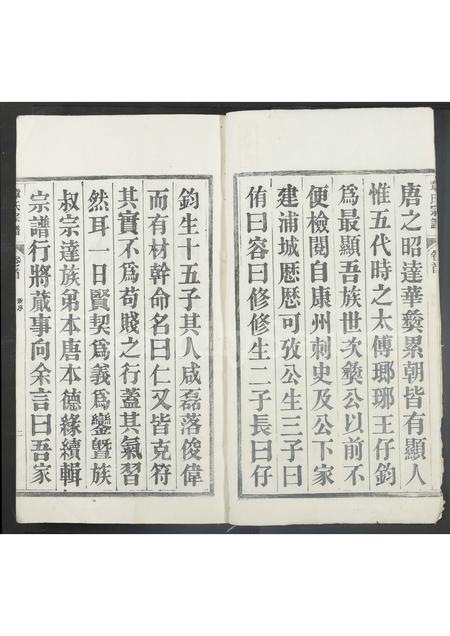 唐之昭達華燓累朝皆有顯人
惟五代時之太傅瑯琊王仔鈞
爲最顯吾族世次燓公以前不
便檢閱自康州刺史及公下家
建浦城歷歷可攷公生三子曰
侑曰容曰修修生二子長曰仔
氏宗譜
卷首
鈞生十五子其人咸磊落俊偉
而有材幹命名曰仁又皆克符
其實不爲苟賤之行蓋其氣習
然耳一日賢契爲義爲鑾曁族
叔宗達族弟本唐本德緣續輯
宗譜行將蕆事向余言曰吾家
章氏宗譜
卷首